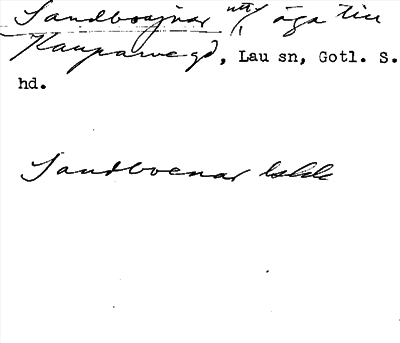 Sandboajnar äga till
Kauparvegd, Lau sn, Gotl. S.
hd.
Sandboenar